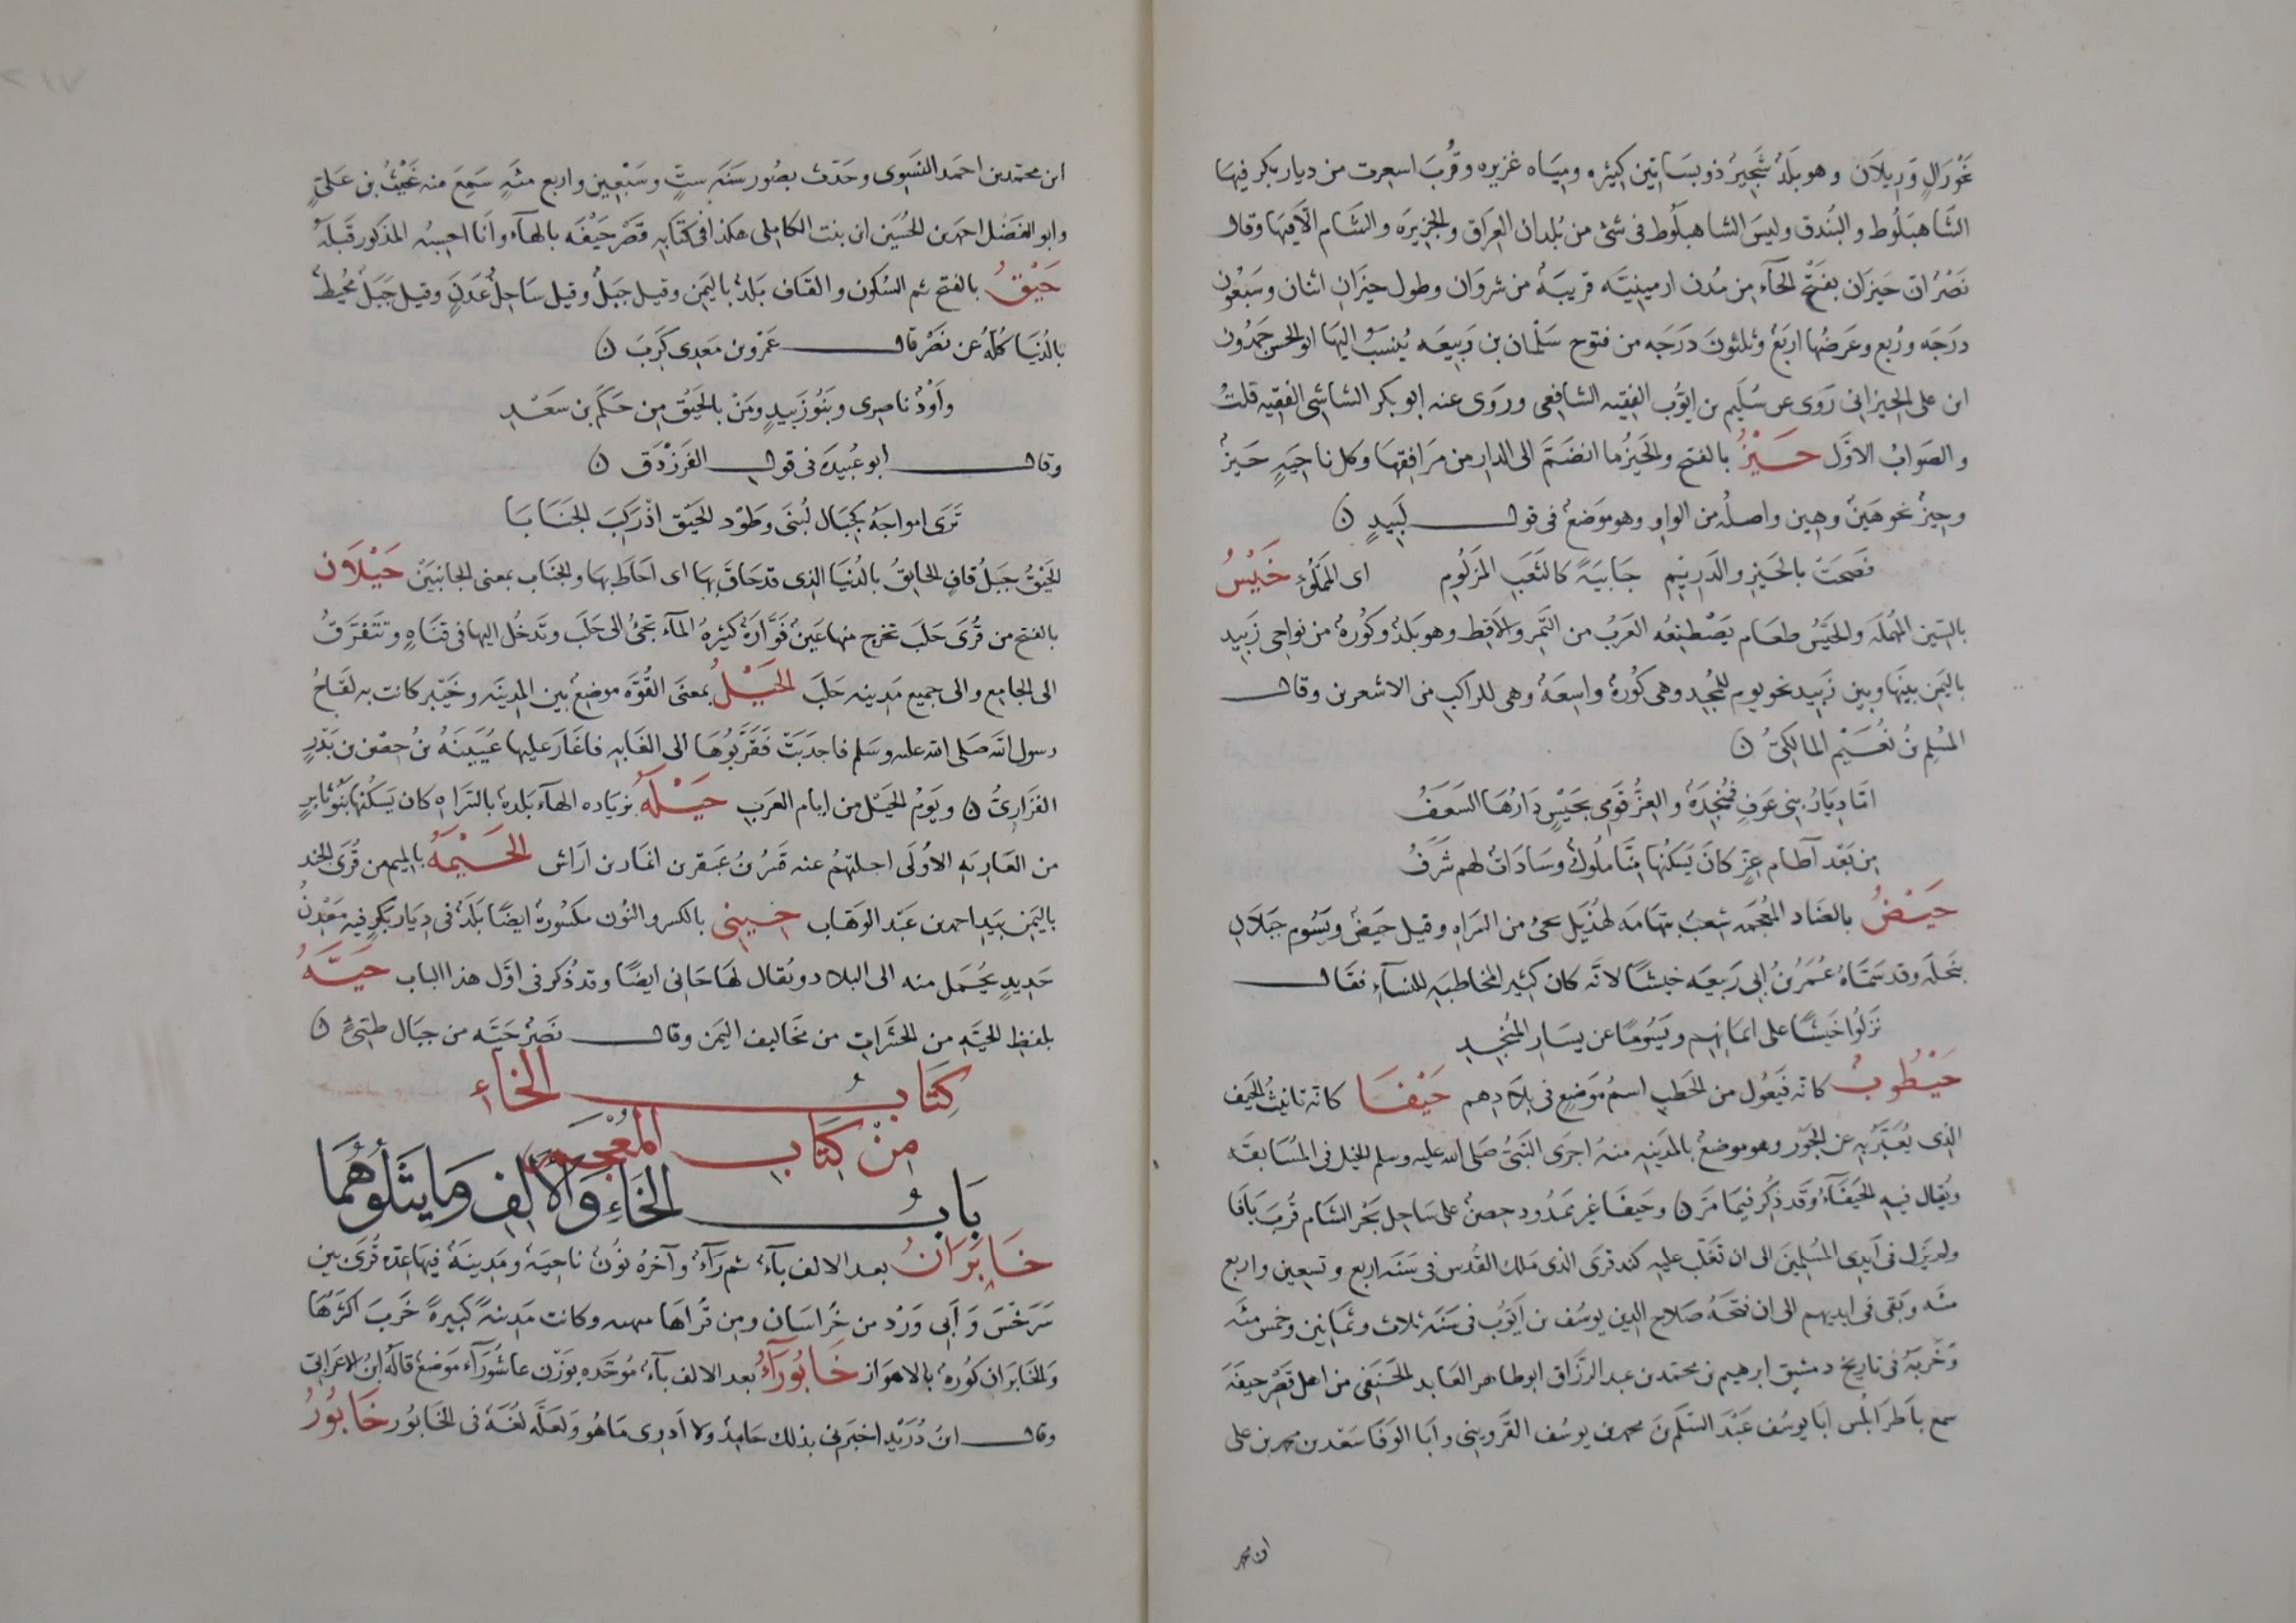 نحو رَالٍ وَرِيلَان وهو بَلَدٌ شَجِيرٌ ذو بسَاتين كثيره ومِيَاه غزيره وقُربَ اسعرت من ديار بكر فيهَا
الشَاهبَلُوط والبُندق وليسَ الشاهبلُوط فى شئ من بُلدان العِرَاق والجزيرَه والشَام الّا فيهَا وقال
نَصْرٌ ان حَيزَان بفتح الحَآء من مُدن ارمينيَّه قريبَهٌ من شروَان وطول حيزَان اثنان وسَبْعُون
درَجَه ورُبع وعَرضُها اربَعٌ وثلثونَ دَرَجَه من فتوح سَلْمان بن رَبيعَه يُنسَبُ اليهَا ابو الحسن حَمدُون
ابن على الحيزانى رَوى عن سُلَيم بن ايوُّب الفقيه الشافعى وروَى عنه ابو بكر الشاشى الفقيه قلتُ
والصَوابُ الاوَّل حَيْزٌ بالفتح والحَيزُ ما انضَمَّ الى الدار من مَرَافقِهَا وكل ناحِيَهٍ حَيزٌ
وحيزٌ نحو هَينٌ وهِين واصلُه من الواو وهو موَضعٌ فى قول لَبيدٍ ن
نَصحَت بالحَيز والدَريْم جَابيَهً كالثَعَبِ المَزلُوم اى المملُوء حَيْسُ
بالسّين المهُملَه والحَيْسُ طعَام يَصْطنِعُه العَربُ من التَمر والاقِط وهو بَلدٌ وكُورهٌ من نواحى زَبيد
باليَمن بينَهَا وبين زَبيد نحو يوم للمُجدِ وهى كُورهٌ واسعَهٌ وهى للراكب من الاشعرين وقال
المسُلم بنُ نُعَيْم المالكىُّ ن
امّا دِيَارُ بنى عَوفٍ فمُنجِدَهٌ والعِزُّ قَومى بحَيْسٍ دَارُهَا السَعَفُ
مِن بَعْد آطَام عِزٍّ كانَ يَسكُنهَا مِنَّا ملُوكٌ وسَادَاتٌ لهم شَرَفُ
حَيْضُ بالضَاد المُعجَمه شِعبٌ بتهَامَه لهُذَيل يجئُ من السَراه وقيل حَيضٌ ويَسُوم جَبَلان
بنَخلَه وقد سَمَّاهُ عُمَرُ بنُ ابى رَبيعَه خيشًا لانَّه كان كثير المخاطبَهِ للنسآء فقَال
نَزلُوا خَيشًا على ايمَانِهم ويَسُومًا عن يسَار المُنجِدِ
حَيْطُوبُ كانه فَيعُول من الحَطب اسمُ موَضعٍ فى بلَادهم حَيْفَا كانّه تانيثُ الحَيف
الذى يُعَبَّرُ بهِ عن الجَوْر وهو موضعٌ بالمَدينهِ منهُ اجرَى النَبىُّ صَلى الله عليه وسلم الخيل فى المُسَابقَه
ويُقال فيهِ الحَيفَآءُ وقَد ذُكِر فيمَا مَرّ ن وحَيفَا غير ممَدُود حِصنٌ على سَاحِل بَحْر الشَام قُربَ يافَا
ولم يَزل فى اَيدى المسُلِمينَ الى ان تَغَلَّب عليه كندفرى الذى مَلك القُدس فى سَنَه اربع وتسعين واربع
مئه وبَقى فى ايديهم الى ان فتحَهُ صَلاح الدين يوسُف بن ايَّوُب فى سَنَه ثلاث وثمَانين وخمس مئه
وَخَّربَهُ فى تاريخ دمشق ابرهيم بن محمّد بن عبد الرَزَّاق ابو طاهر العَابد الحَنَفى من اهل قَصْر حيفَه
سمع باَطرَابُلس ابَا يوسُف عَبْد السَلَم بنَ محمد بن يوسُف القَزوينى وابَا الوَفَا سَعْد بن محمد بن على
ابن محمد
ابن محمّد بن احمَد النَسَوِى وحَدّث بصُور سَنَه ستٍّ وسَبْعِين واربع مئهٍ سَمِعَ منه غَيْثُ بن عَلىٍ
وابو الفَضل احمد بن الحُسَين ابن بنت الكاملى هكذا فى كتَابهِ قَصْر حَيْفَه بالهآء وانَا احسِبُه المذكور قَبلَهُ
حَيْقُ بالفتح ثم السُكون والقَاف بَلدٌ باليَمن وقيل جَبلٌ وقيل سَاحِلُ عَدَنٍ وقيل جَبَلٌ مُحيطٌ
بالدُنيَا كُلّهُ عن نصْر قال عَمْرو بن مَعدِى كَربَ ن
واَوْدٌ نامِرى وبَنُو زُبَيدٍ ومَنْ بالحَيْق مِن حَكَم بن سَعْدِ
وقال ابو عُبيدَه فى قول الفَرزْدَق ن
تَرَى امواجَهُ كِجبَال لُبنَى وطَوْد الحَيْق اذْ رَكبَ الجَنَابَا
الحَيْقُ جَبَلُ قافٍ الحايقُ بالدُنيَا الذى قد حَاقَ بهَا اى احَاطَ بهَا والجنَاب بمعنى الجانبَينْ حَيْلَان
بالفتح من قُرى حَلَب تخرج منها عَينٌ فَوَّارَهٌ كثيرهُ المآء تَجئُ الى حَلَب وتَدخُل اليها فى قنَاهٍ وتتَفرَقُ
الى الجامع والى جميع مَدينه حَلَب الحَيْلُ بمعنَى القُوَّه موضعٌ بين المدينَه وخَيبَر كانت به لقَاحُ
رسول الله صَلى الله عليه وسَلم فاجدَبَتْ فَقَرَّبُوهَا الى الغَابهِ فاغَارَ عليها عُيَينَهُ بنُ حِصْن بن بَدْرٍ
الفَزَارىُّ ن ويَومُ الحَيْل من ايام العَرب حَيْلَهُ بزيَاده الهآء بَلدهٌ بالسَراه كان يَسكُنها بَنُو ثابرٍ
من العَاربَهِ الاوُلَى اجلتهُم عنه قَسْرُ بنُ عبقر بن انمار بن ارَاش الحَيْمَهُ بالميم من قُرَى الجَند
باليَمن بيَد احمد بن عَبْد الوَهَاب حِينِى بالكسر والنُون مكسُورهٌ ايضًا بَلَدٌ فى دِيَار بَكرٍ فيه مَعْدنُ
حَدِيدٍ يُحْمَل منه الى البلاد ويُقال لهَا حَانى ايضًا وقد ذُكر فى اوّل هذا الباب حَيَّهُ
بلفظِ الحَيَّهِ من الحشَرات من مخَاليف اليَمن وقال نَصْرٌ حَيَّه من جبَال طيّئٍ ن
كِتَابُ الخَاءِ
مِنْ كِتَابِ المُعْجَمِ
بَابُ الخَاءِ وَالاَلِفِ وَمَا يَتْلُوهُمَا
خَابَرَانُ بعد الالف بآءٌ ثم رَآءٌ وآخرُه نوُنٌ ناحيَهٌ ومَدينَهٌ فيهَا عدّه قُرىً بين
سَرَخْسَ وَأَبى وَرْد من خُراسَان ومِن قُراهَا ميهنه وكانت مَدِينهً كبيرهً خَربَ اكثرُهَا
وَالخَابرَان كوُرهٌ بالاهوَاز خَابُورَآءُ بعد الالف بآءٌ مُوحَّده بوَزْن عاشُورَآء مَوضعٌ قالهُ ابنُ الاعَرَابى
وقال ابنُ دُرَيْدٍ اخبَرنى بذلك حَامِدٌ ولا اَدرى مَا هُو ولَعلَّه لُغَهٌ فى الخَابُور خَابُورُ